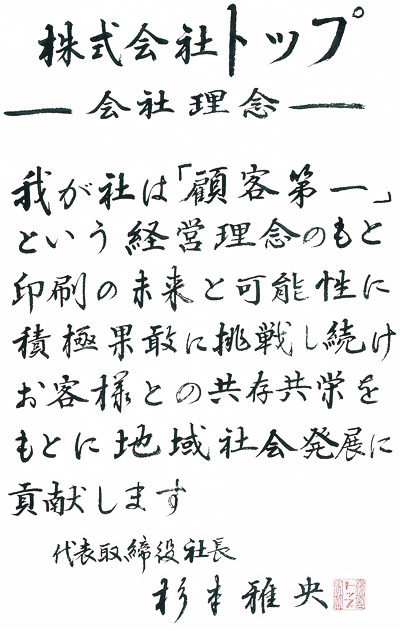 株式会社トップ
会社理念
我が社は「顧客第一」
という経営理念のもと
印刷の未来と可能性に
積極果敢に挑戦し続け
お客様との共存共栄を
もとに地域社会発展に
貢献します
代表取締役社長
杉本雅央